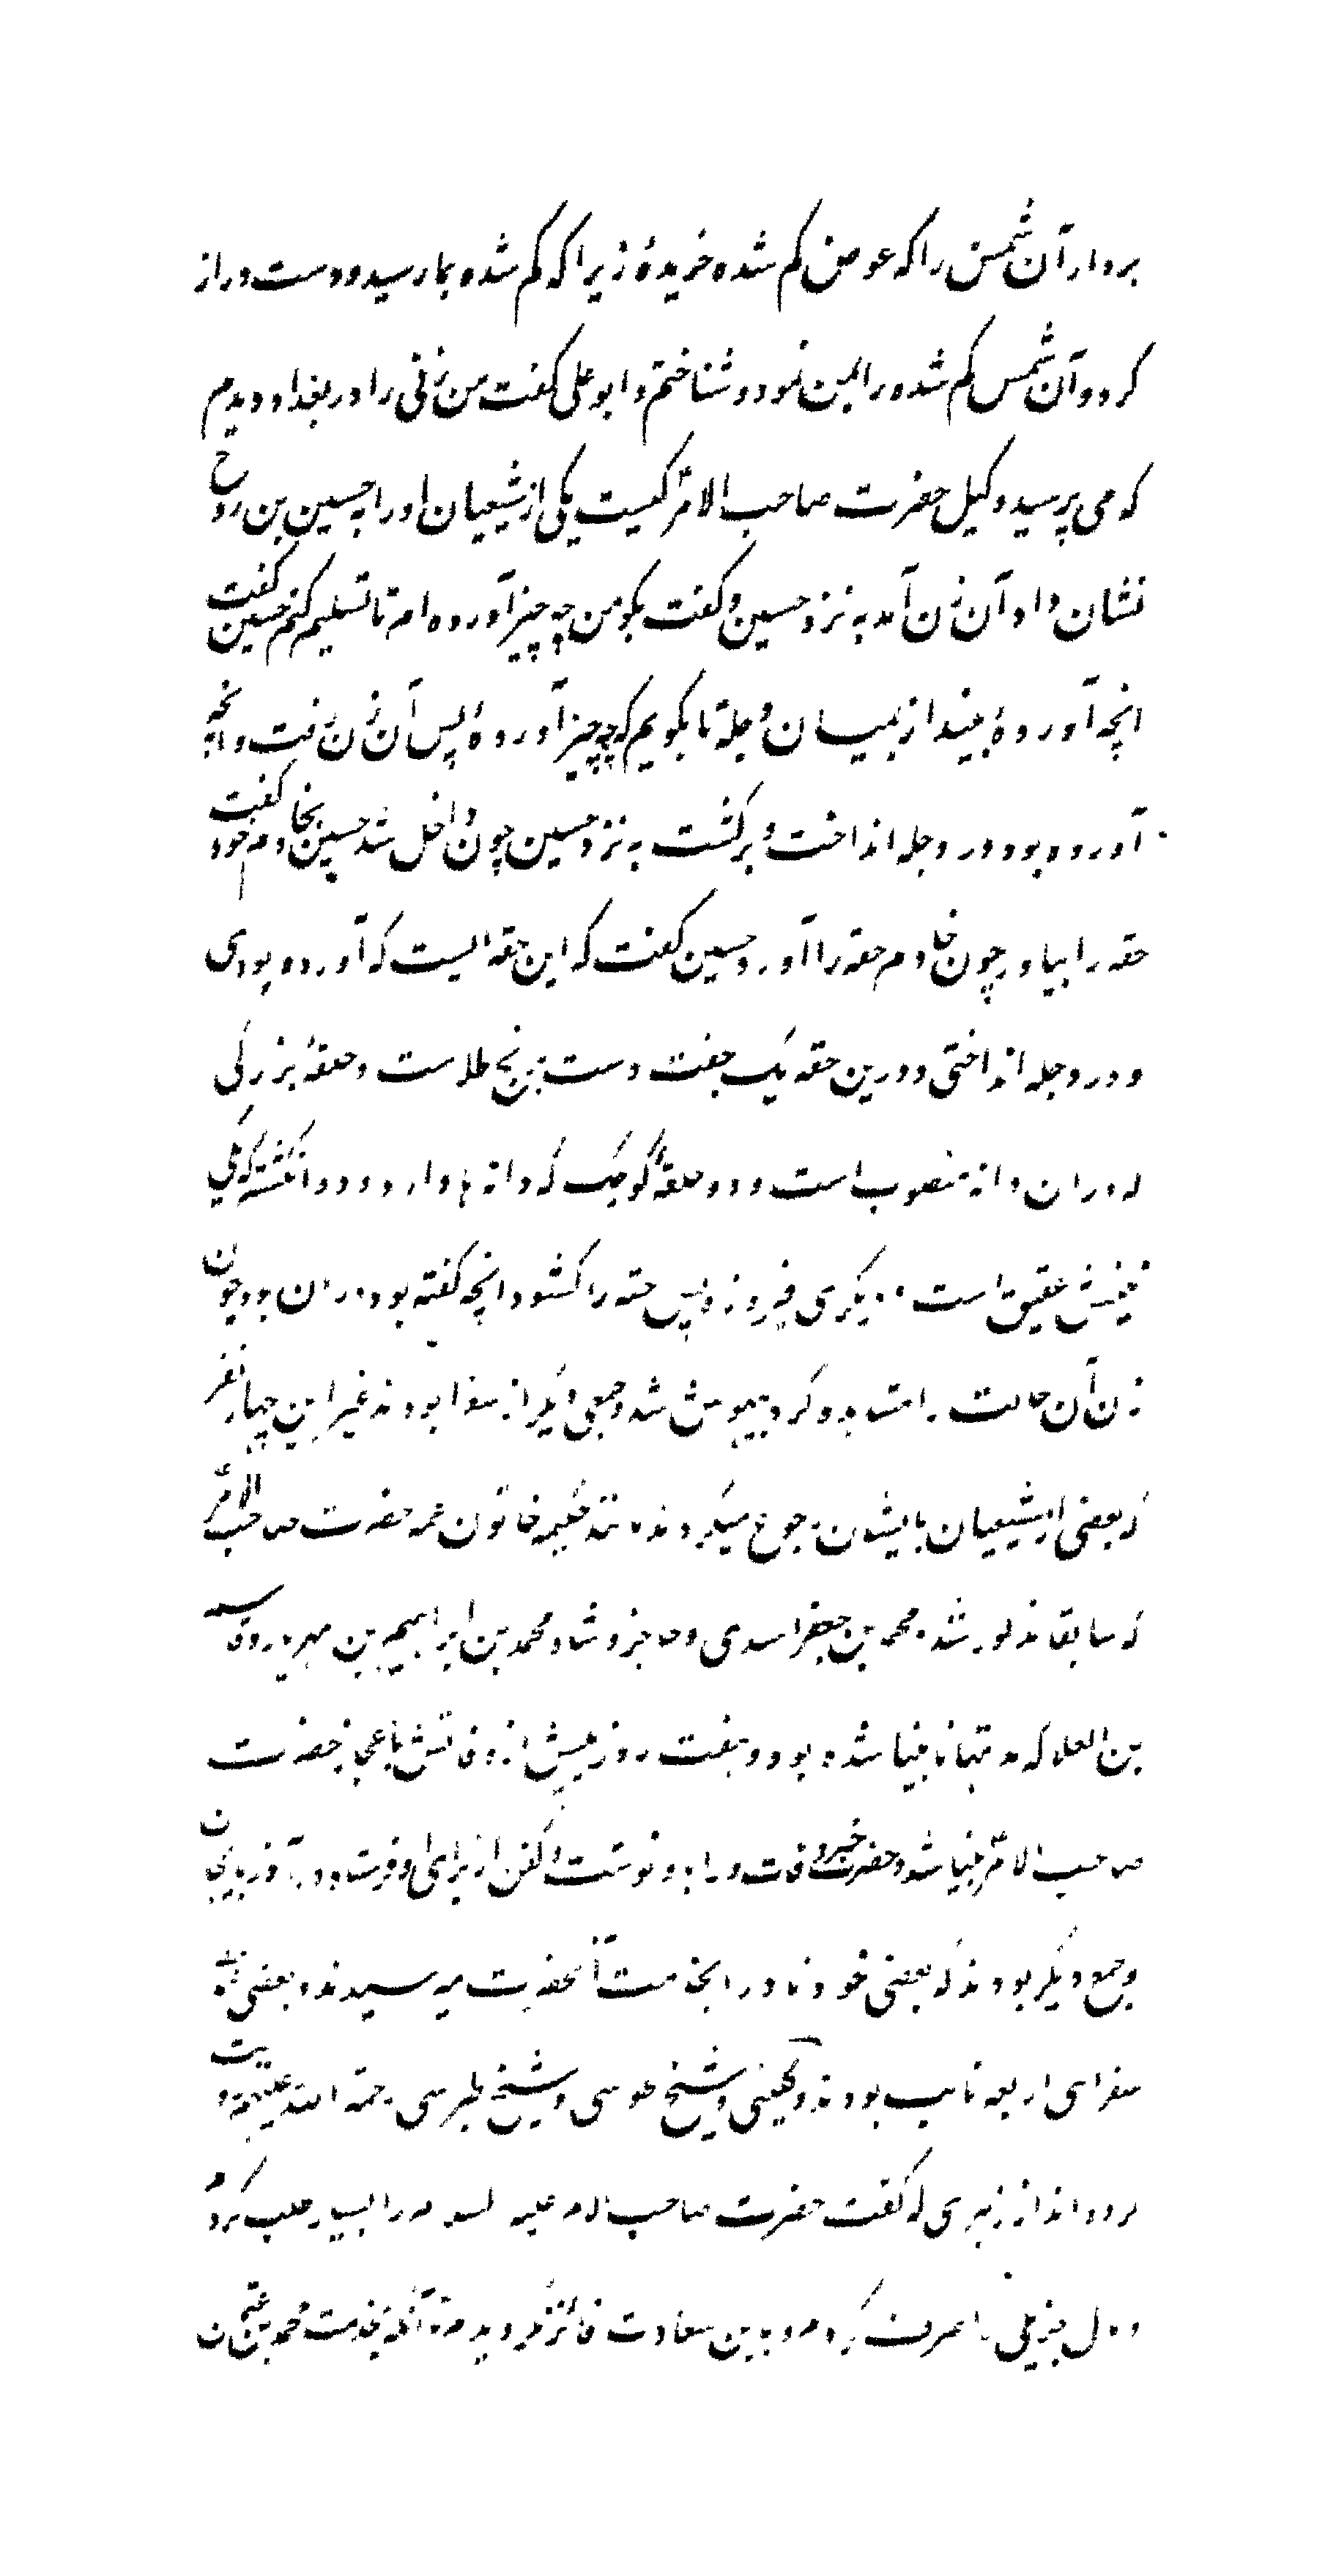 بردار آن شمش را که عوض کم شده خریدۀ زیرا که کم شده بما رسید و دست دراز
کرد و آن شمس کم شده را بمن نمود و شناختم و ابو علی کفت من زنی را در بغداد دیدم
که می پرسید وکیل حضرت صاحب الامرؑ کیست یکی از شیعیان او را به حسین بن روح
نشان داد آن زن آمد به نزد حسین و کفت بکو من چه چیز آورده ام تا تسلیم کنم حسین کفت
انچه آوردۀ بینداز بمیان دجله تا بکویم که چه چیز آوردۀ پس آن زن رفت و انچه
آورده بود در دجله انداخت و برکشت به نزد حسین چون داخل شد حسین بخادم خود کفت
حقه را بیاور چون خادم حقه را آورد حسین کفت که این حقه ایست که آورده بودی
و در دجله انداختی و درین حقه یک جفت دست برنج طلاست و حلقۀ بزرکی
که در ان دانه منصوب است و دو حلقۀ کوچک که دانه ها دارد و دو انکشتر که یکی
نخینش عقیق است و دیکری فیروزه پس حقه را کشود انچه کفته بود در ان بود چون
زن آن حالت را مشاهده کرد بیهوش شد و جمعی دیکر از سفرا بودند غیر این چهار نفر
که بعضی از شیعیان بایشان رجوع میکردند مانند حکیمه خاتون عمه حضرت صاحب الامرؑ
که سابقا مذکور شد و محمد بن جعفر اسدی و حاجز وشا و محمد بن ابراهیم بن مهزیار و قاسم
بن العلا که مدتها نابینا شده بود و هفت روز پیش از وفاتش باعجاز حضرت
صاحب الامرؑ بینا شد و حضرت خبر وفات او را باو نوشت و کفن از برای او فرستاد و در آذربایجان
و جمع دیکر بودند که بعضی خود نادرا بخدمت آنحضرت میرسیدند و بعضی
سفرای اربعه نایب بودند و کلینی و شیخ طوسی و شیخ طبرسی رحمة الله علیهم روایت
کرده اند از زهری که کفت حضرت صاحب الامر علیه السلام را بسیار طلب کردم
و مال جزیلی را صرف کردم و باین سعادت فائز نکردیدم تا آنکه بخدمت محمد بن عثمان